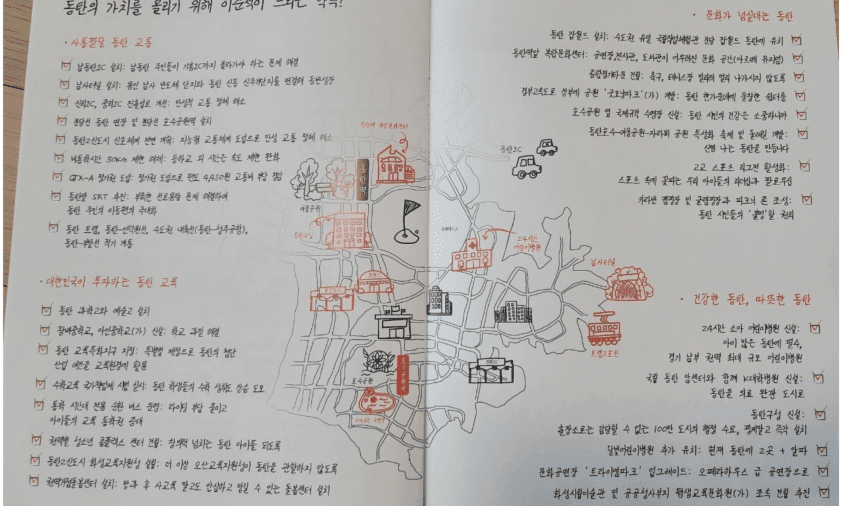 동탄의 가치를 올리기 위해 이준석이 드리는 약속!
· 사통팔달 동탄 교통
남동탄IC 설치: 남동탄 주민들이 기흥IC까지 올라가야 하는 문제 해결
남사터널 설치: 용인 남사 반도체 단지와 동탄 신동 신주거단지를 연결해 동반성장
신리IC, 중리IC 진출입로 개선: 만성적 교통 정체 해소
분당선 동탄 연장 및 분당선 호수공원역 설치
동탄2신도시 신호체계 전면 개혁: 지능형 교통체계 도입으로 만성 교통 정체 해소
비통학시간 30km 제한 해제: 등하교 외 시간은 속도 제한 완화
GTX-A 정기권 도입: 정기권 도입으로 편도 4,450원 교통비 부담 절감
동탄발 SRT 추진: 부족한 선로용량 문제 해결하여
동탄 주민의 이동편의 극대화
동탄 트램, 동탄-인덕원선, 수도권 내륙선(동탄-청주공항),
동탄-부발선 적기 개통
· 대한민국이 투자하는 동탄 교육
동탄 과학고와 예술고 설치
왕배중학교, 이산중학교(가) 신설: 학교 과밀 해결
동탄 교육특화지구 지정: 특별법 제정으로 동탄의 첨단
산업 여건을 교육환경에 활용
수학교육 국가책임제 시범 실시: 동탄 학생들의 수학 성취도 향상 도모
통학 시간대 전용 순환 버스 운영: 라이딩 부담 줄이고
아이들의 교육 통학권 증대
권역별 청소년 콤플렉스 센터 건립: 창의력 넘치는 동탄 아이들 되도록
동탄2신도시 화성교육지원청 설립: 더 이상 오산교육지원청이 동탄을 관할하지 않도록
권역거점돌봄센터 설치: 방과 후 사교육 말고도 안심하고 맡길 수 있는 돌봄센터 설치
동탄역
여울공원
동탄구청
호수공원
호수공원역
동탄IC
24시간
어린이병원
남사터널
트램2호선
· 문화가 넘실대는 동탄
동탄 잡월드 설치: 수도권 유일 국립직업체험관 분당 잡월드 동탄에 유치
동탄역앞 복합문화센터: 공연장, 전시관, 도서관이 어우러진 문화 공간(아르떼 뮤지엄)
종합경기타운 건설: 축구, 테니스장 멀리멀리 나가시지 않도록
경부고속도로 상부에 공원 '굿모닝파크'(가) 개통: 동탄 한가운데에 웅장한 쉼터를
호수공원 옆 국제규격 수영장 신설: 동탄 시민의 건강은 소중하니까
동탄호수-여울공원-자라뫼 공원 특성화 축제 및 둘레길 개통:
신명 나는 동탄을 만듭니다
고교 스포츠 리그전 활성화:
스포츠 속에 꽃피는 우리 아이들의 리더십과 팔로우십
치라반 캠핑장 및 글램핑장과 피크닉 존 조성:
동탄 시민들의 '꿀잼'할 권리
· 건강한 동탄, 따뜻한 동탄
24시간 소아 어린이병원 신설:
아이 많은 동탄에 필수,
경기 남부 권역 최대 규모 어린이병원
국립 동탄 암센터와 함께 K대학병원 신설:
동탄을 의료 관광 도시로
동탄구청 신설:
출장소로는 감당할 수 없는 100만 도시의 행정 수요, 핑계말고 즉각 설치
달빛어린이병원 추가 유치: 현재 동탄에 2곳 + 알파
문화공연장 '트라이엠파크' 업그레이드: 오페라하우스 급 공연장으로
화성시립미술관 및 공공청사부지 평생교육문화원(가) 조속 건립 추진